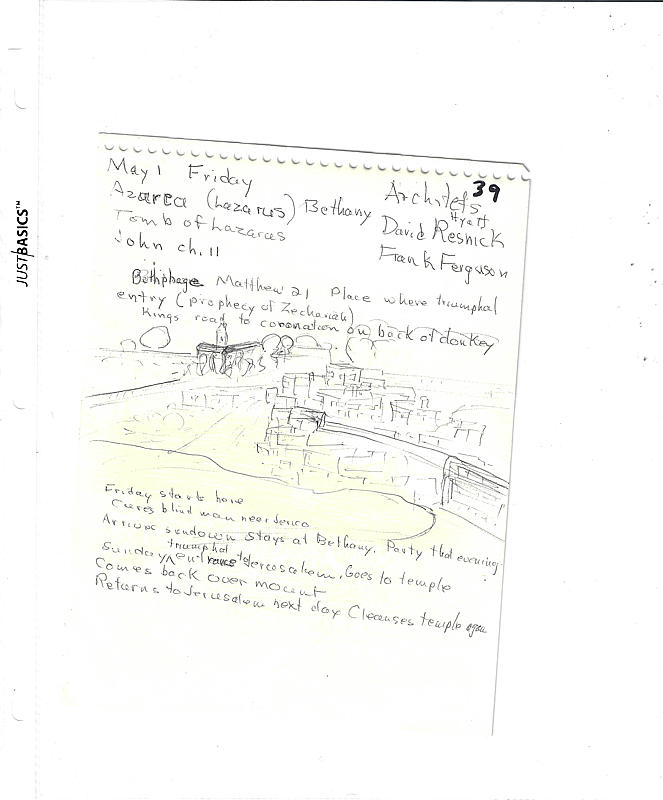 39
May 1 Friday
Azarea (Lazarus) Bethany
Tomb of Lazarus
John ch. 11
Architets
Hyatt
David Resnick
Frank Ferguson
Bethphage Matthew 21 Place where triumphal
entry (prophecy of Zechariah)
Kings road to coronation on back of donkey
Friday starts here
Cures blind man near Jerico
Arrives sundown Stays at Bethany. Party that evening
triumphal
Sunday entrance to Jerusalem. Goes to temple
Comes back over mount
Returns to Jerusalem next day Cleanses temple again
JUSTBASICS™